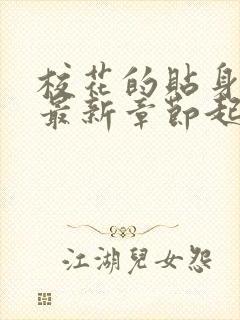 校花的貼身
最新章節起
江湖兒女怨